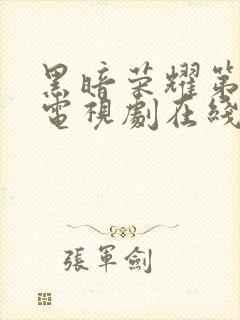 黑暗荣耀第
電視劇在綫
張軍劍